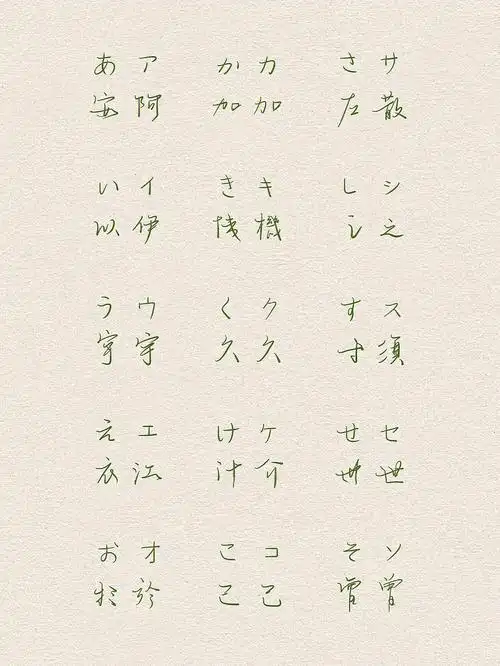 あ ア か カ さ サ
安 阿 加 加 左 散
い イ き キ し シ
以 伊 機 之 之
う ウ く ク す ス
宇 宇 久 久 寸 須
え エ け ケ せ セ
衣 江 计 介 世 世
お オ こ コ そ ソ
於 於 己 己 曽 曽